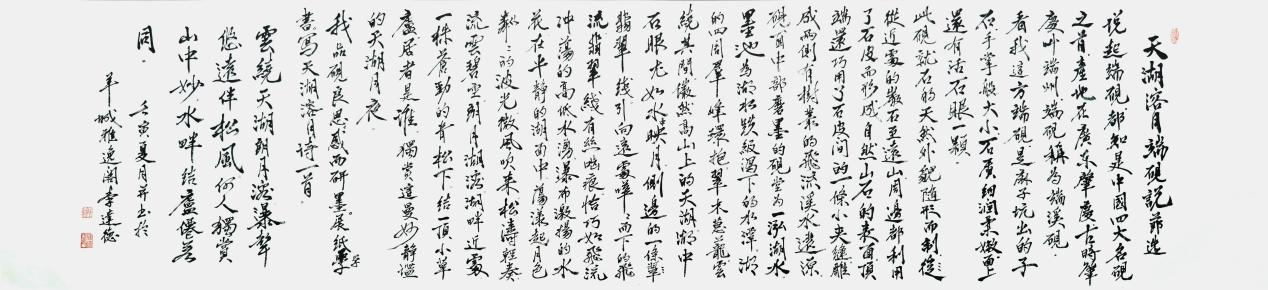 天湖溶月端硯說節選
說起端硯都知是中國四大名硯
之首產地在廣東肇慶古時肇
慶叫端州端硯稱為端溪硯
看我這方端硯是麻子坑出的子
石手掌般大小石質細潤柔嫩面上
還有活石眼一顆
此硯就石的天然外貌隨形而制從
從近處的巖石至遠山周邊都利用
了石皮而形成自然山石的表面頂
端還巧用了石皮間的一條小夾縫雕
成兩側有樹叢的飛流溪水遠源
硯面中部磨墨的硯堂為一泓湖水
墨池為湖水跌級瀉下的水潭湖
的四周群峰環抱翠木蔥蘢雲
繞其間儼然高山上的天湖湖中
石眼尤如水映月側邊的一條翡
翡翠線引向遠處嘩而下的飛
流翡翠綫有絲鳴痕恰巧如飛流
沖蕩的高低水湧瀑布激揚的水
花在平靜的湖面中蕩漾起月色
粼粼的波光微風吹來松濤輕奏
流雲碧空朗月湖濤湖畔近處
一株蒼勁的青松下結一頂小草
廬居者是誰獨賞這曼妙靜謐
的天湖月夜
我品硯良思感而研墨展紙舉
書寫天湖溶月詩一首
雲繞天湖朗月濤瀑聲
悠遠伴松風何人獨賞
山中妙水畔結廬僊若
同
壬寅夏月并書於
羊城雅逸閣李達德